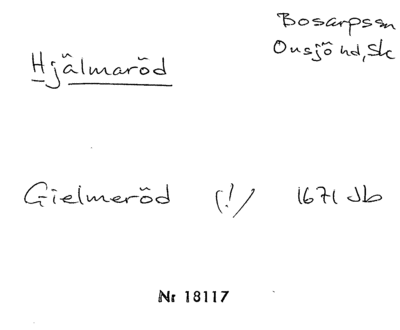 Bosarpssn
Onsjö hd, Sk
Hjälmaröd
Gielmeröd (!) 1671 Jb
Nr 18117